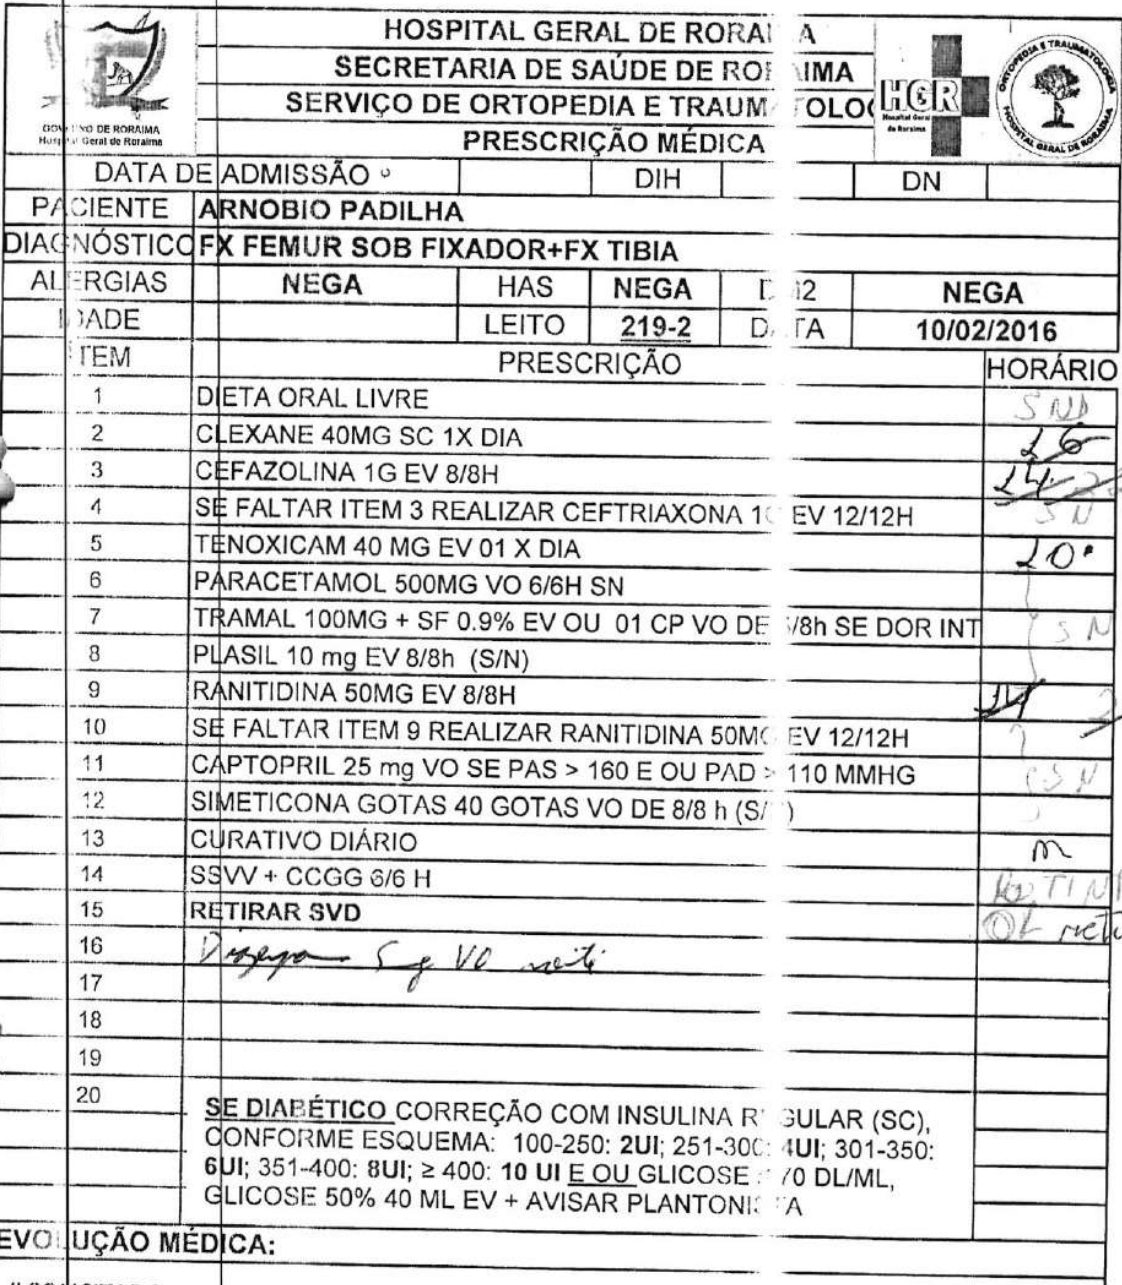 HOSPITAL GERAL DE RORAI A
SECRETARIA DE SAÚDE DE RO IMA
SERVIÇO DE ORTOPEDIA E TRAUM TOLO
PRESCRIÇÃO MÉDICA
GOV NO DE RORAIMA
Hosp l Geral de Roraima
HGR
Hospital Geral
de Roraima
ORTOPEDIA E TRAUMATOLOGIA
HOSPITAL GERAL DE RORAIMA
DATA DE ADMISSÃO DIH DN
PACIENTE ARNOBIO PADILHA
DIAGNÓSTICO FX FEMUR SOB FIXADOR+FX TIBIA
ALERGIAS NEGA HAS NEGA D 2 NEGA
IDADE LEITO 219-2 DATA 10/02/2016
ITEM PRESCRIÇÃO HORÁRIO
1 DIETA ORAL LIVRE SND
2 CLEXANE 40MG SC 1X DIA 16
3 CEFAZOLINA 1G EV 8/8H 14
4 SE FALTAR ITEM 3 REALIZAR CEFTRIAXONA 1G EV 12/12H SN
5 TENOXICAM 40 MG EV 01 X DIA 20
6 PARACETAMOL 500MG VO 6/6H SN
7 TRAMAL 100MG + SF 0.9% EV OU 01 CP VO DE /8h SE DOR INT SN
8 PLASIL 10 mg EV 8/8h (S/N)
9 RANITIDINA 50MG EV 8/8H
10 SE FALTAR ITEM 9 REALIZAR RANITIDINA 50MG EV 12/12H
11 CAPTOPRIL 25 mg VO SE PAS > 160 E OU PAD > 110 MMHG SN
12 SIMETICONA GOTAS 40 GOTAS VO DE 8/8 h (S/ )
13 CURATIVO DIÁRIO m
14 SSVV + CCGG 6/6 H
15 RETIRAR SVD OK
16 VO
17
18
19
20
SE DIABÉTICO CORREÇÃO COM INSULINA REGULAR (SC),
CONFORME ESQUEMA: 100-250: 2UI; 251-300: 4UI; 301-350:
6UI; 351-400: 8UI; ≥ 400: 10 UI E OU GLICOSE 70 DL/ML,
GLICOSE 50% 40 ML EV + AVISAR PLANTONISTA
EVOLUÇÃO MÉDICA: